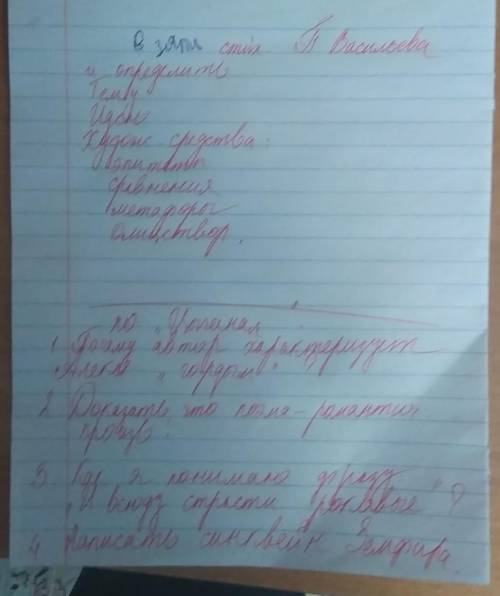 В запи стих П Васильева
и определить
Тему
Идею
Худож средства:
эпитеты
сравнения
метафоры
олицетвор.
по "Цыганам"
1. Почему автор характеризует
Алеко "гордым"
2 Доказать, что поэма - романтич
произв.
3 Как я понимаю фразу
"И всюду страсти роковые"?
4 Написать синквейн Земфира